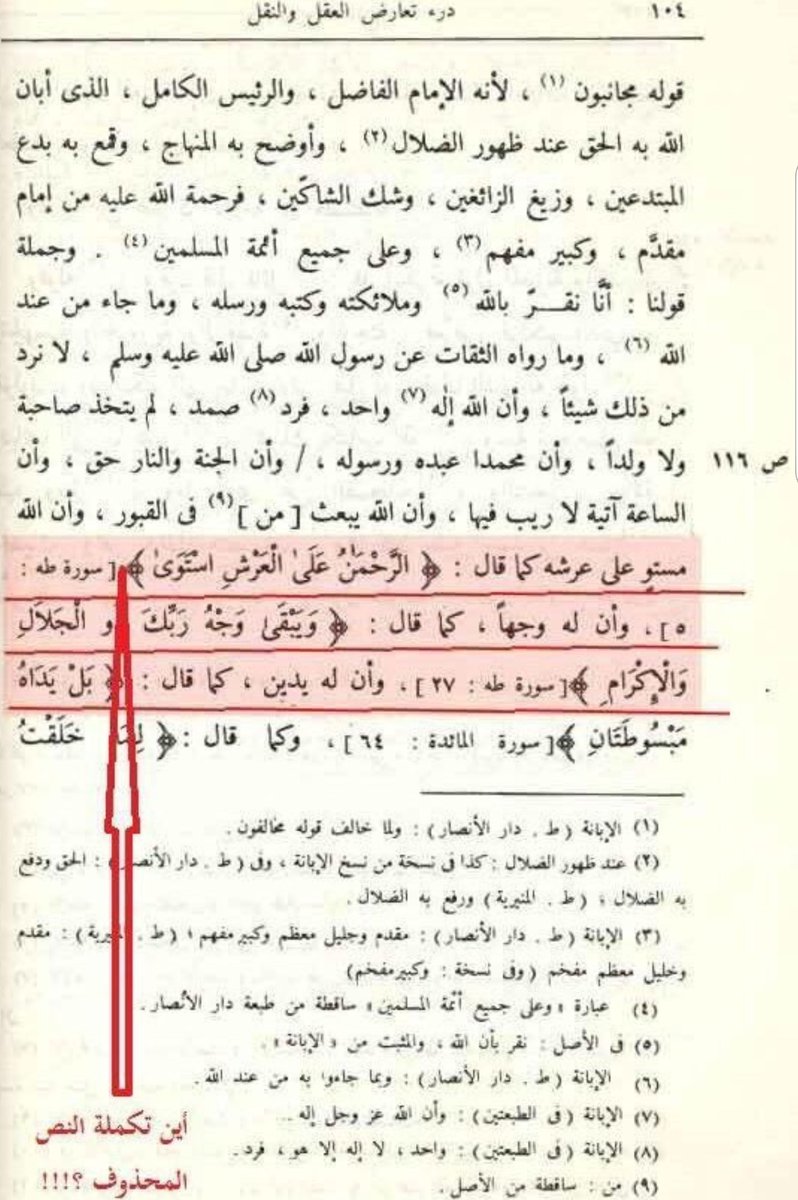 ١٠٤ درء تعارض العقل والنقل
قوله مجانبون (١) ، لأنه الإمام الفاضل ، والرئيس الكامل ، الذى أبان
الله به الحق عند ظهور الضلال (٢) ، وأوضح به المنهاج ، وقمع به بدع
المبتدعين ، وزيغ الزائغين ، وشك الشاكّين ، فرحمة الله عليه من إمام
مقدَّم ، وكبير مفهم (٣) ، وعلى جميع أئمة المسلمين (٤) . وجملة
قولنا : أنَّا نقـــرّ بالله (٥) وملائكته وكتبه ورسله ، وما جاء من عند
الله (٦) ، وما رواه الثقات عن رسول الله صلى الله عليه وسلم ، لا نرد
من ذلك شيئاً ، وأن الله إلٰه (٧) واحد ، فرد (٨) صمد ، لم يتخذ صاحبة
ص ١١٦ ولا ولداً ، وأن محمدا عبده ورسوله ، / وأن الجنة والنار حق ، وأن
الساعة آتية لا ريب فيها ، وأن الله يبعث [ من ] (٩) فى القبور ، وأن الله
مستوٍ على عرشه كما قال : ﴿ الرَّحْمَٰنُ عَلَى الْعَرْشِ اسْتَوَىٰ ﴾ [ سورة طه :
٥ ] ، وأن له وجهاً ، كما قال : ﴿ وَيَبْقَىٰ وَجْهُ رَبِّكَ و الْجَلَالِ
وَالْإِكْرَامِ ﴾ [ سورة طه : ٢٧ ] ، وأن له يدين ، كما قال : ﴿ بَلْ يَدَاهُ
مَبْسُوطَتَانِ ﴾ [ سورة المائدة : ٦٤ ] ، وكما قال : ﴿ خَلَقْتُ
(١) الإبانة ( ط . دار الأنصار ) : ولما خالف قوله مخالفون .
(٢) عند ظهور الضلال : كذا فى نسخة من نسخ الإبانة ، وفى ( ط . دار الأنصار ) : الحق ودفع
به الضلال ؛ ( ط . المنيرية ) ورفع به الضلال .
(٣) الإبانة ( ط . دار الأنصار ) : مقدم وجليل معظم وكبير مفهم ؛ ( ط . المنيرية ) : مقدم
وخليل معظم مفخم ( وفى نسخة : وكبير مفخم )
(٤) عبارة « وعلى جميع أئمة المسلمين » ساقطة من طبعة دار الأنصار .
(٥) فى الأصل : نقر بأن الله ، والمثبت من « الإبانة »
(٦) الإبانة ( ط . دار الأنصار ) : وبما جاءوا به من عند الله .
(٧) الإبانة ( فى الطبعتين ) : وأن الله عز وجل إله ..
(٨) الإبانة ( فى الطبعتين ) : واحد ، لا إله إلا هو ، فرد .
(٩) من : ساقطة من الأصل .
أين تكملة النص
المحذوف ؟!!!